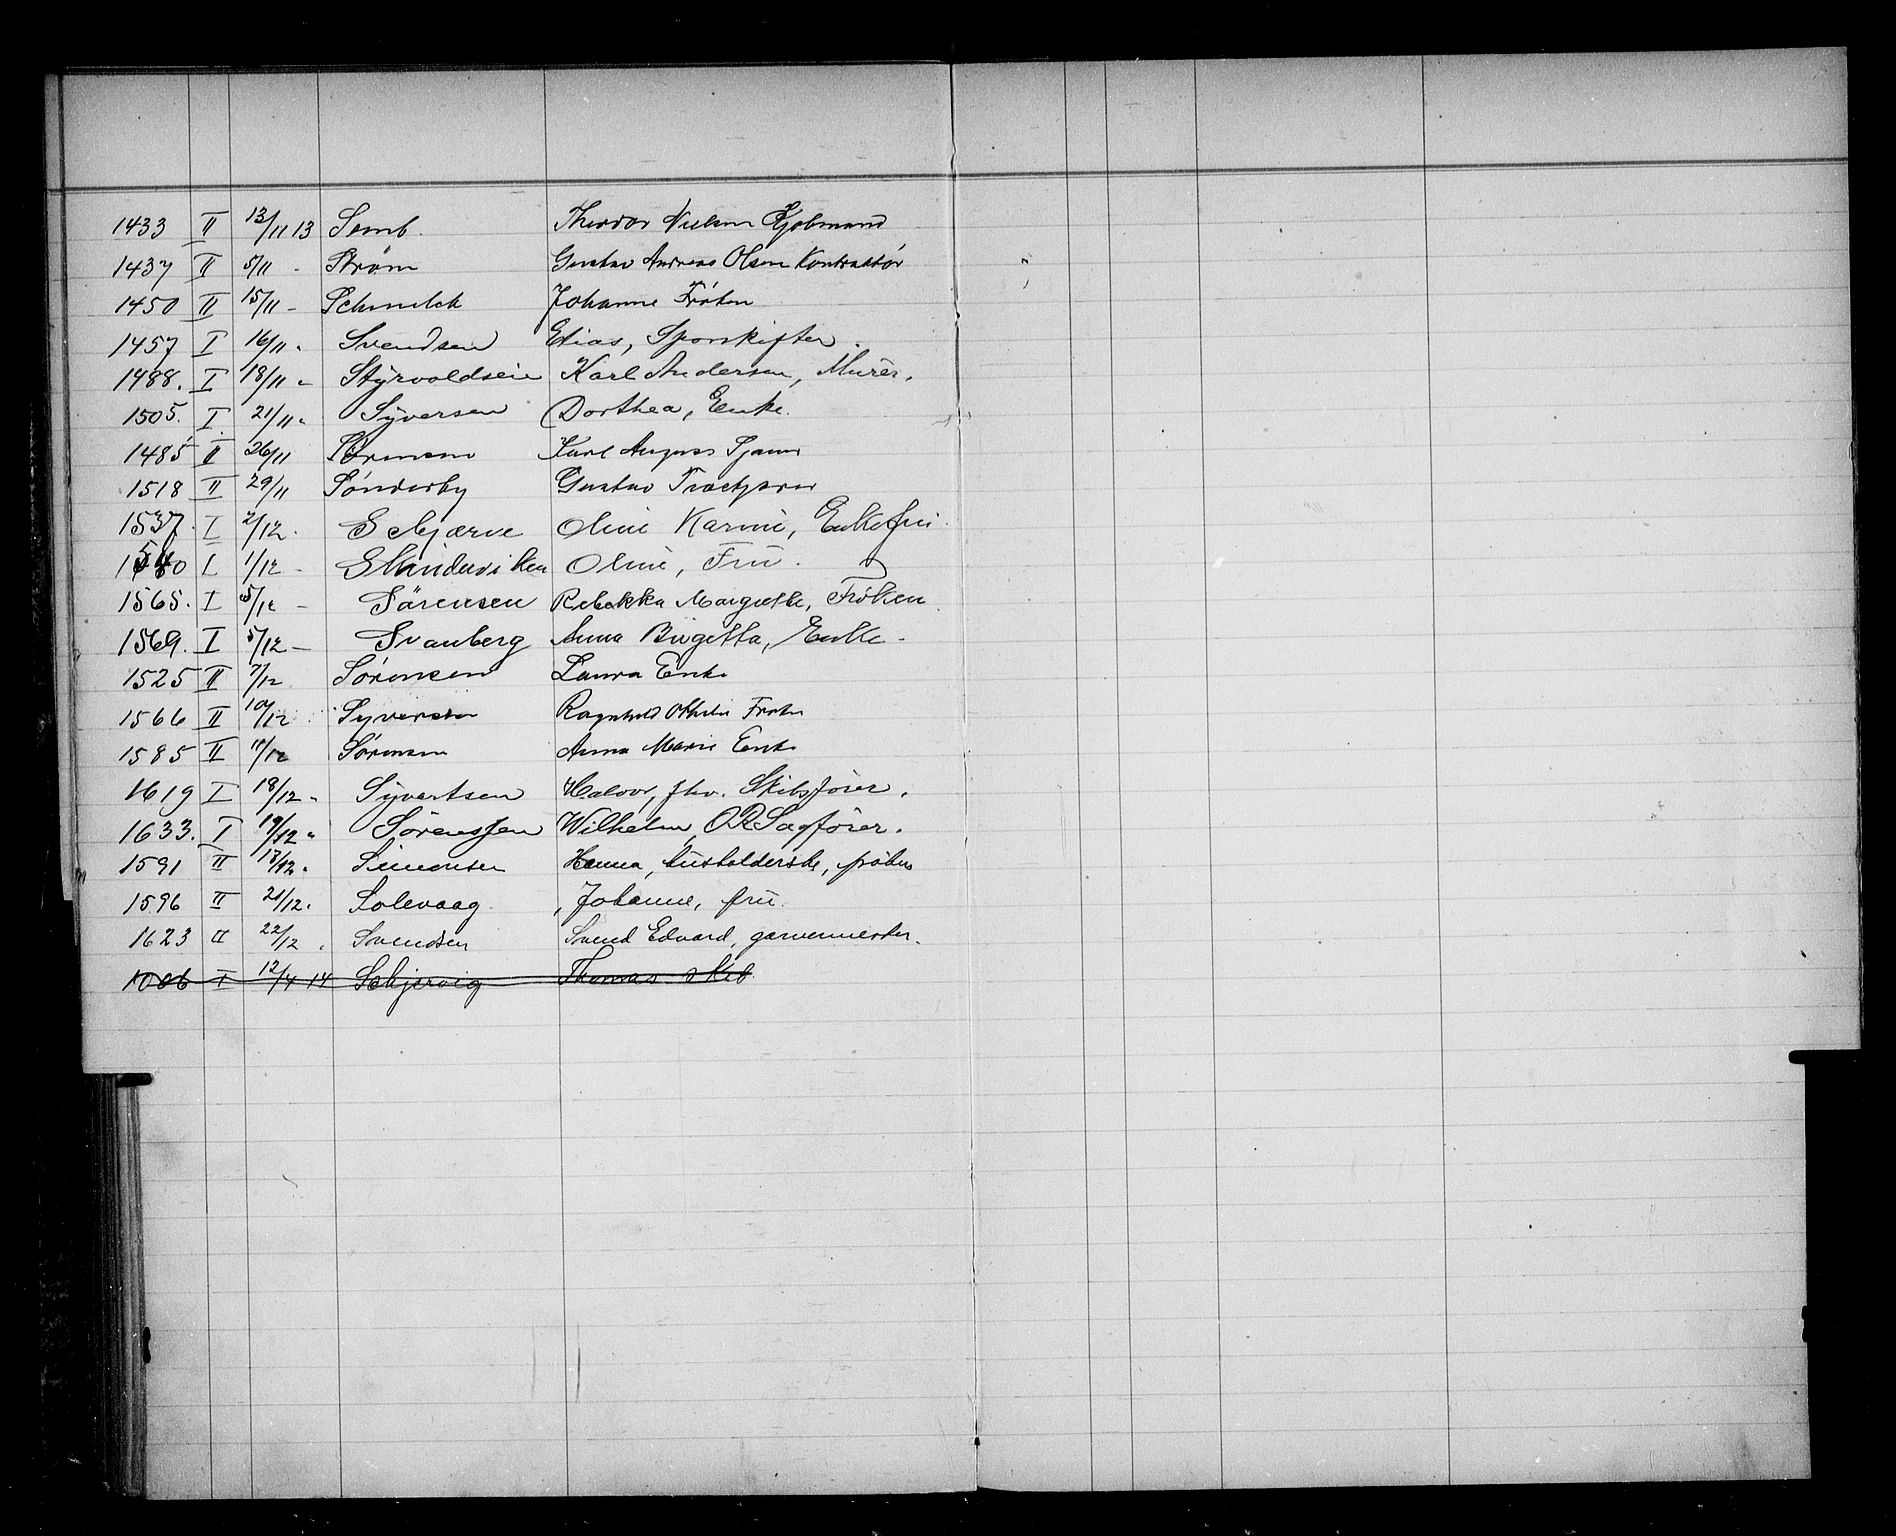 1433 II 13/11 13 Semb. Theodor Nielsen Kjøbmand
1437 II 5/11 - Strøm Gustav Andreas Olsen Kontraktör
1450 II 15/11 - Schmelck Johanne Frøken
1457 I 16/11 " Svendsen Elias, Sporskifter.
1488. I 18/11 " Styrvoldseie Karl Andersen, Murer.
1505. I. 21/11 " Syversen Dorthea, Enke.
1485 II 26/11 Sørensen Karl August
1518 II 29/11 Sønderby Gustav
1537. I 2/12. Schjærve Oline Karine, Enkefru.
1540 I 1/12 - Skinderviken Oline, Fru.
1565. I 5/12 - Sørensen Rebekka Margrethe, Frøken.
1569. I 5/12 - Svanberg Anna Birgitta, Enke.
1525 II 7/12 Sørensen Laura Enke
1566 II 10/12 Syversen Ragnhild Othilie Frøken
1585 II 11/12 Sørensen Anna Marie Enke
1619 I 18/12 " Syvertsen Halvor, fhv. Skibsfører.
1633. I 19/12 " Sørenssen Wilhelm, O.R.Sagfører.
1591 II 18/12 " Simonsen Hanna, husholderske, frøken
1596 II 21/12 " Solevaag , Johanne, fru.
1623 II 22/12 " Svendsen Svend Edvard, garvermester.
1006 I 12/4 14 Schjervig Thomas Skib